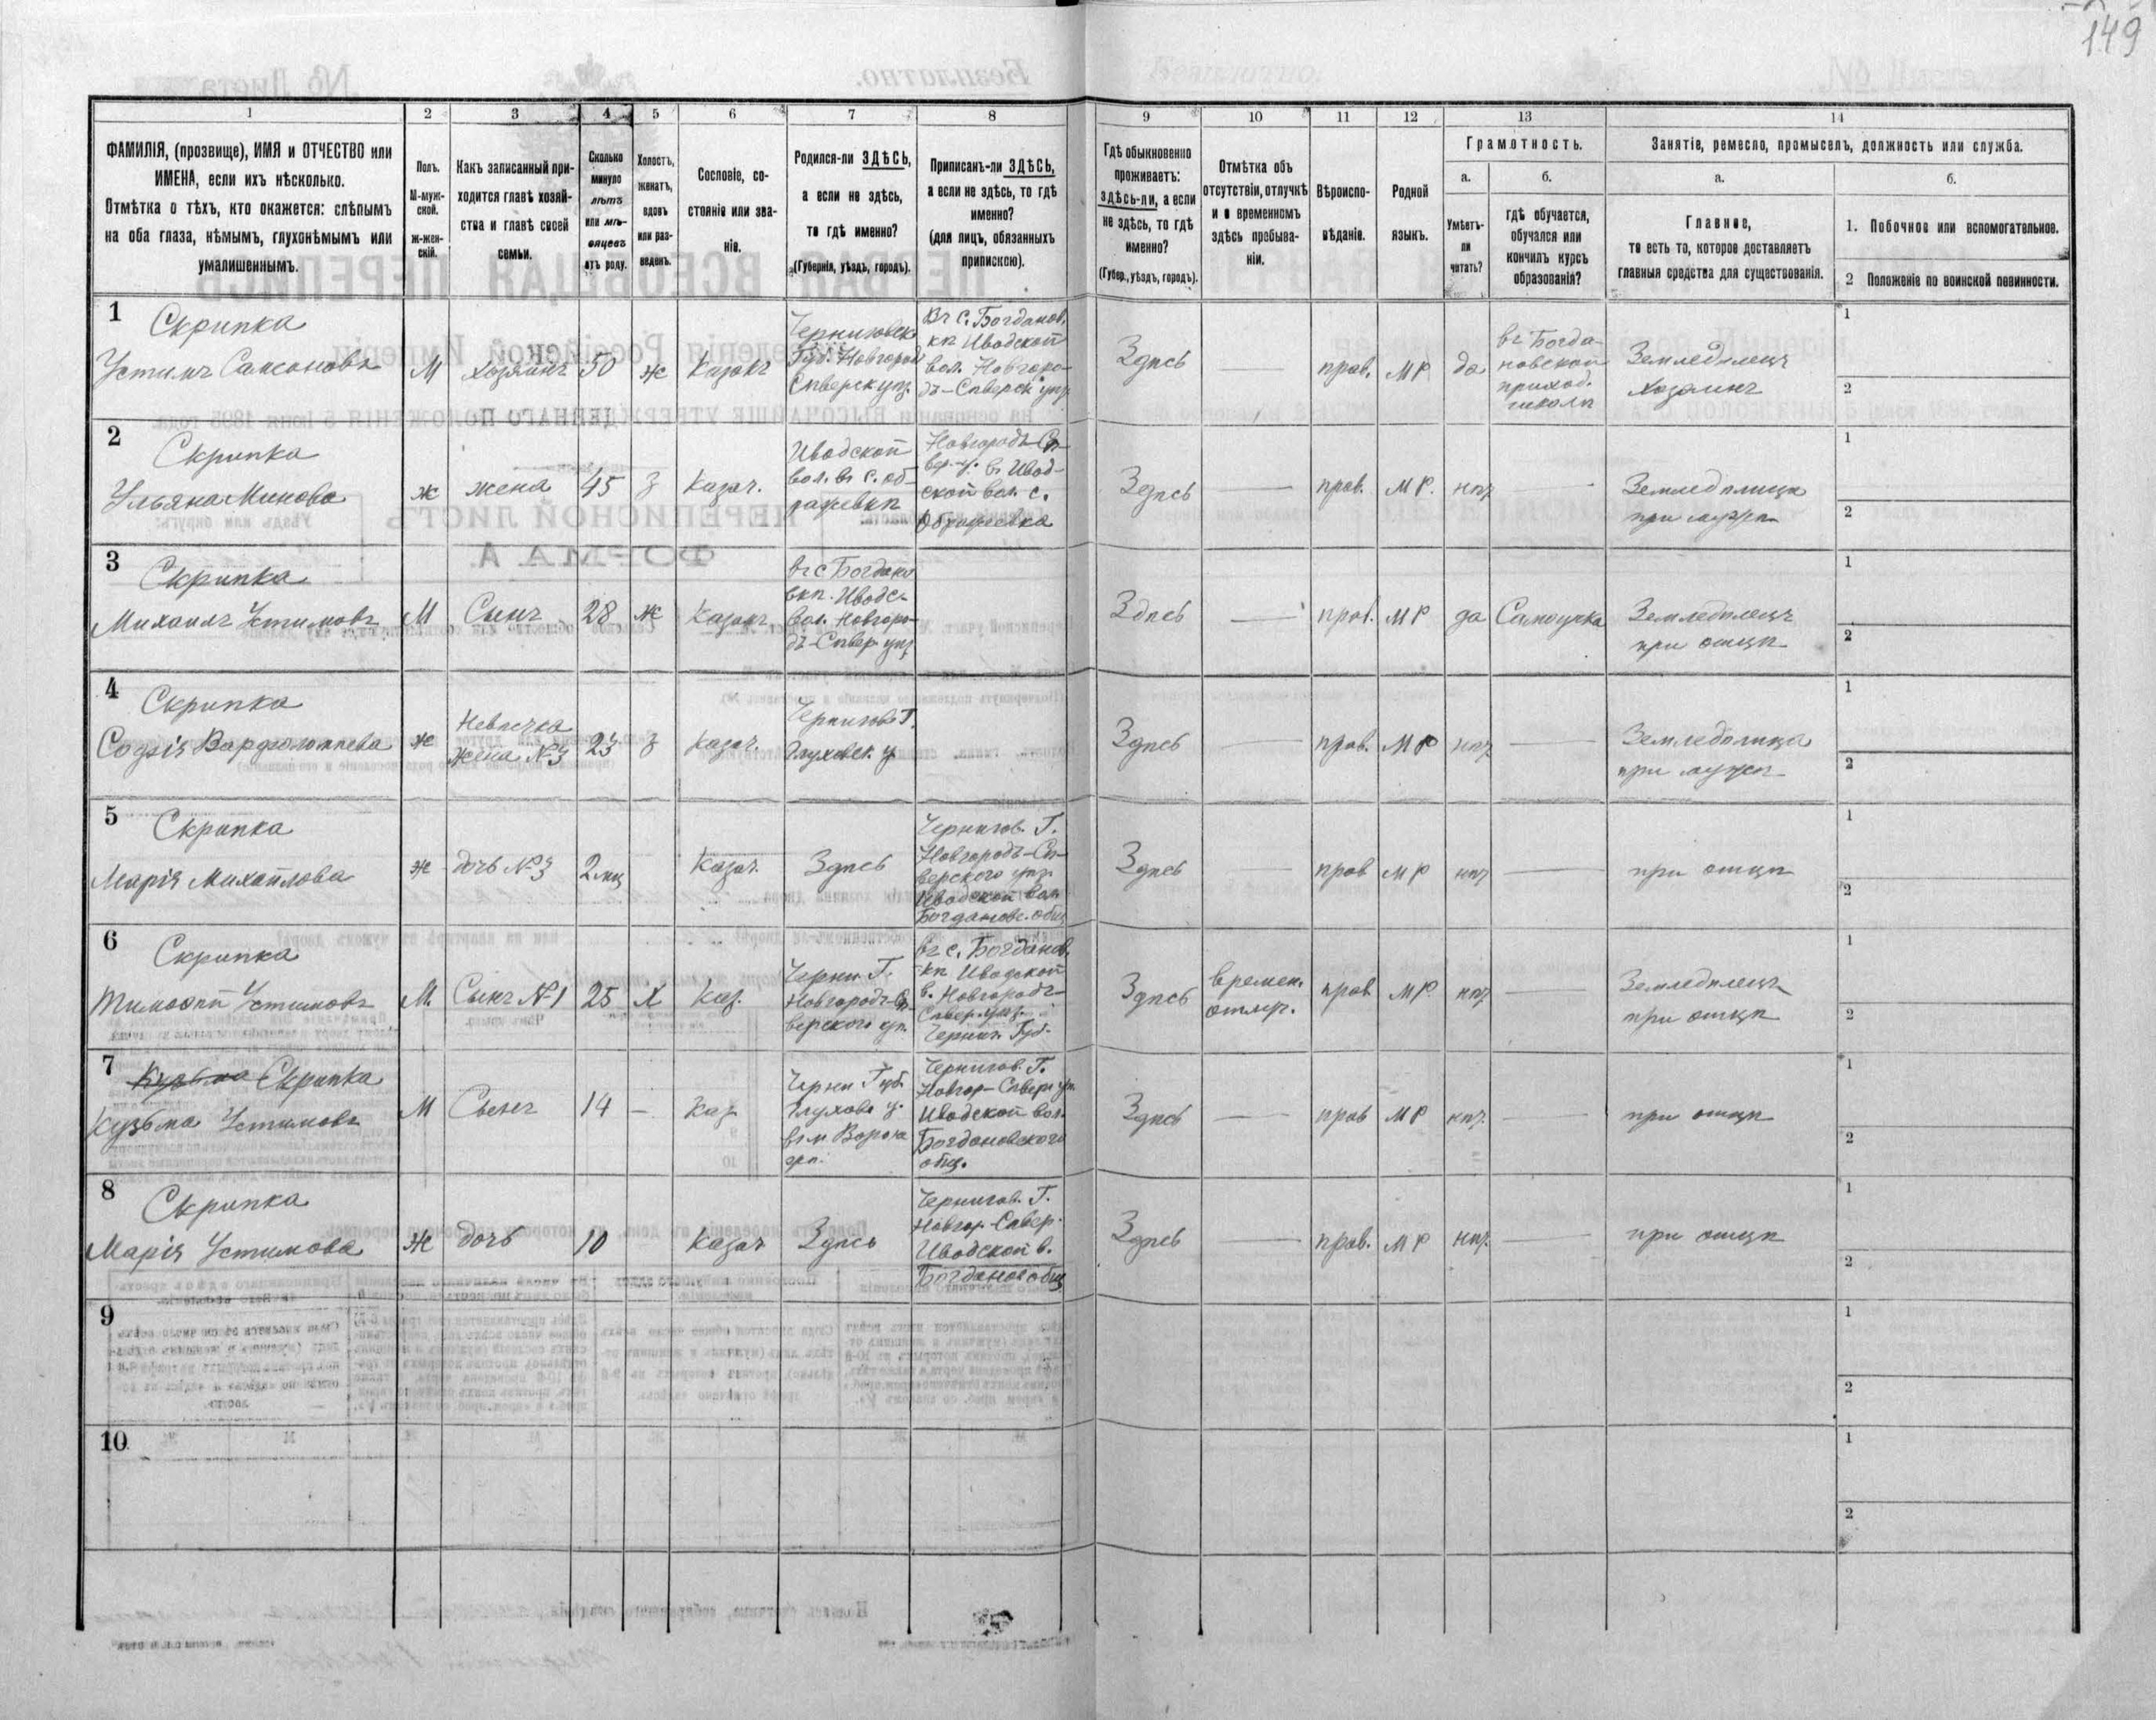 149
1 2 3 4 5 6 7 8 9 10 11 12 13 14
ФАМИЛІЯ, (прозвище), ИМЯ и ОТЧЕСТВО или
ИМЕНА, если ихъ нѣсколько.
Отмѣтка о тѣхъ, кто окажется: слѣпымъ
на оба глаза, нѣмымъ, глухонѣмымъ или
умалишеннымъ.
Полъ.
М-муж-
ской.
ж-жен-
скій.
Какъ записанный при-
ходится главѣ хозяй-
ства и главѣ своей
семьи.
Сколько
минуло
лѣтъ
или мѣ-
сяцевъ
отъ роду.
Холостъ,
женатъ,
вдовъ
или раз-
веденъ.
Сословіе, со-
стояніе или зва-
ніе.
Родился-ли ЗДѢСЬ,
а если не здѣсь,
то гдѣ именно?
(Губернія, уѣздъ, городъ).
Приписанъ-ли ЗДѢСЬ,
а если не здѣсь, то гдѣ
именно?
(для лицъ, обязанныхъ
припискою).
Гдѣ обыкновенно
проживаетъ:
здѣсь-ли, а если
не здѣсь, то гдѣ
именно?
(Губер., уѣздъ, городъ).
Отмѣтка объ
отсутствіи, отлучкѣ
и о временномъ
здѣсь пребыва-
ніи.
Вѣроиспо-
вѣданіе.
Родной
языкъ.
Грамотность.
а.
Умѣетъ-
ли
читать?
б.
гдѣ обучается,
обучался или
кончилъ курсъ
образованія?
Занятіе, ремесло, промыселъ, должность или служба.
а.
Главное,
то есть то, которое доставляетъ
главныя средства для существованія.
б.
1. Побочное или вспомогательное.
2 Положеніе по воинской повинности.
1
Скрипка
Устимъ Самсоновъ
М
Хозяинъ
50
ж
Казакъ
Черниговск.
Губ. Новгород
Сѣверск уѣз.
Въ с. Богданов.
кѣ Иводской
вол. Новгоро-
дъ-Сѣверск уѣз
Здѣсь
прав.
МР
да
въ Богда-
новской
приход.
школѣ
Земледѣлецъ
Хозяинъ
1
2
2
Скрипка
Ульяна Минова
ж
жена
45
з
Казач.
Иводской
вол. въ с. об-
ражеевкѣ
Новгородъ-Сѣ-
вер. у. въ Ивод-
ской вол. с.
Ображеевка
Здѣсь
прав.
МР.
нѣт
Земледѣлица
при мужѣ
1
2
3
Скрипка
Михаилъ Устимовъ
М
Сынъ
28
ж
Казакъ
въ с Богдано
вкѣ. Иводс.
вол. Новгоро-
дъ-Сѣвер. уѣз
Здѣсь
прав.
МР
да
Самоучка
Земледѣлецъ
при отцѣ
1
2
4
Скрипка
Софія Варфоломѣева
ж
Невѣстка
жена №3
23
з
Казач.
Чернигов Г.
Глуховск у
Здѣсь
прав.
МР
нѣт
Земледѣлица
при мужѣ
1
2
5
Скрипка
Марія Михайлова
ж
дочь №3
2 мц
Казач.
Здѣсь
Чернигов. Г.
Новгородъ-Сѣ-
верского уѣз.
Иводской вол.
Богдановс. общ
Здѣсь
прав
МР
нѣт
при отцѣ
1
2
6
Скрипка
Тимофѣй Устимовъ
М.
Сынъ №1
25
Х
Каз.
Черни. Г.
Новгородъ-Сѣ-
верского уѣ.
въ с. Богданов.
кѣ Иводской
в. Новгородъ-
Сѣвер. уѣз.
Черниг. Губ.
Здѣсь
времен.
отлуч.
прав
МР
нѣт
Земледѣлецъ
при отцѣ
1
2
7
Кузьма Скрипка
Кузьма Устимовъ
М
Сынъ
14
—
Каз
Черни Губ.
Глухов у.
въ м Ворона
жѣ.
Чернигов. Г.
Новгор-Сѣвер уѣ.
Иводской вол.
Богдановского
общ.
Здѣсь
прав
МР
нѣт.
при отцѣ
1
2
8
Скрипка
Марія Устимова
ж
дочь
10
Казач
Здѣсь
Чернигов. Г.
Новгор-Сѣвер.
Иводской в.
Богданов общ
Здѣсь
прав.
МР
нѣт.
при отцѣ
1
2
9
1
2
10
1
2